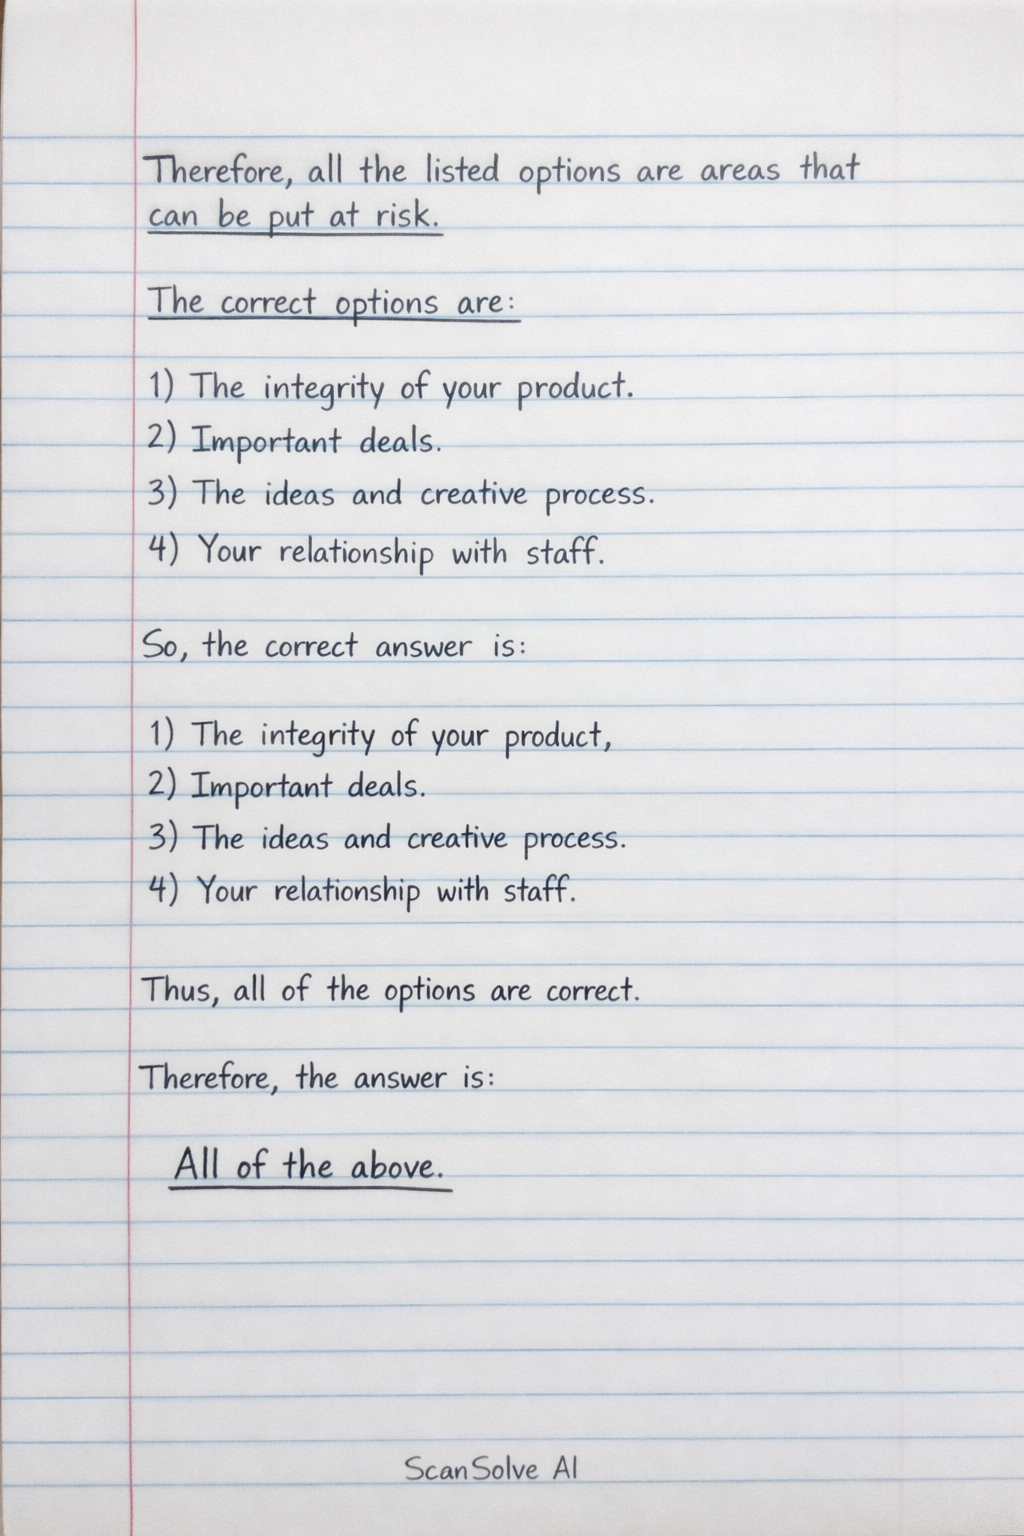 Therefore, all the listed options are areas that
can be put at risk.
The correct options are:
1) The integrity of your product.
2) Important deals.
3) The ideas and creative process.
4) Your relationship with staff.
So, the correct answer is:
1) The integrity of your product,
2) Important deals.
3) The ideas and creative process.
4) Your relationship with staff.
Thus, all of the options are correct.
Therefore, the answer is:
All of the above.
ScanSolve AI